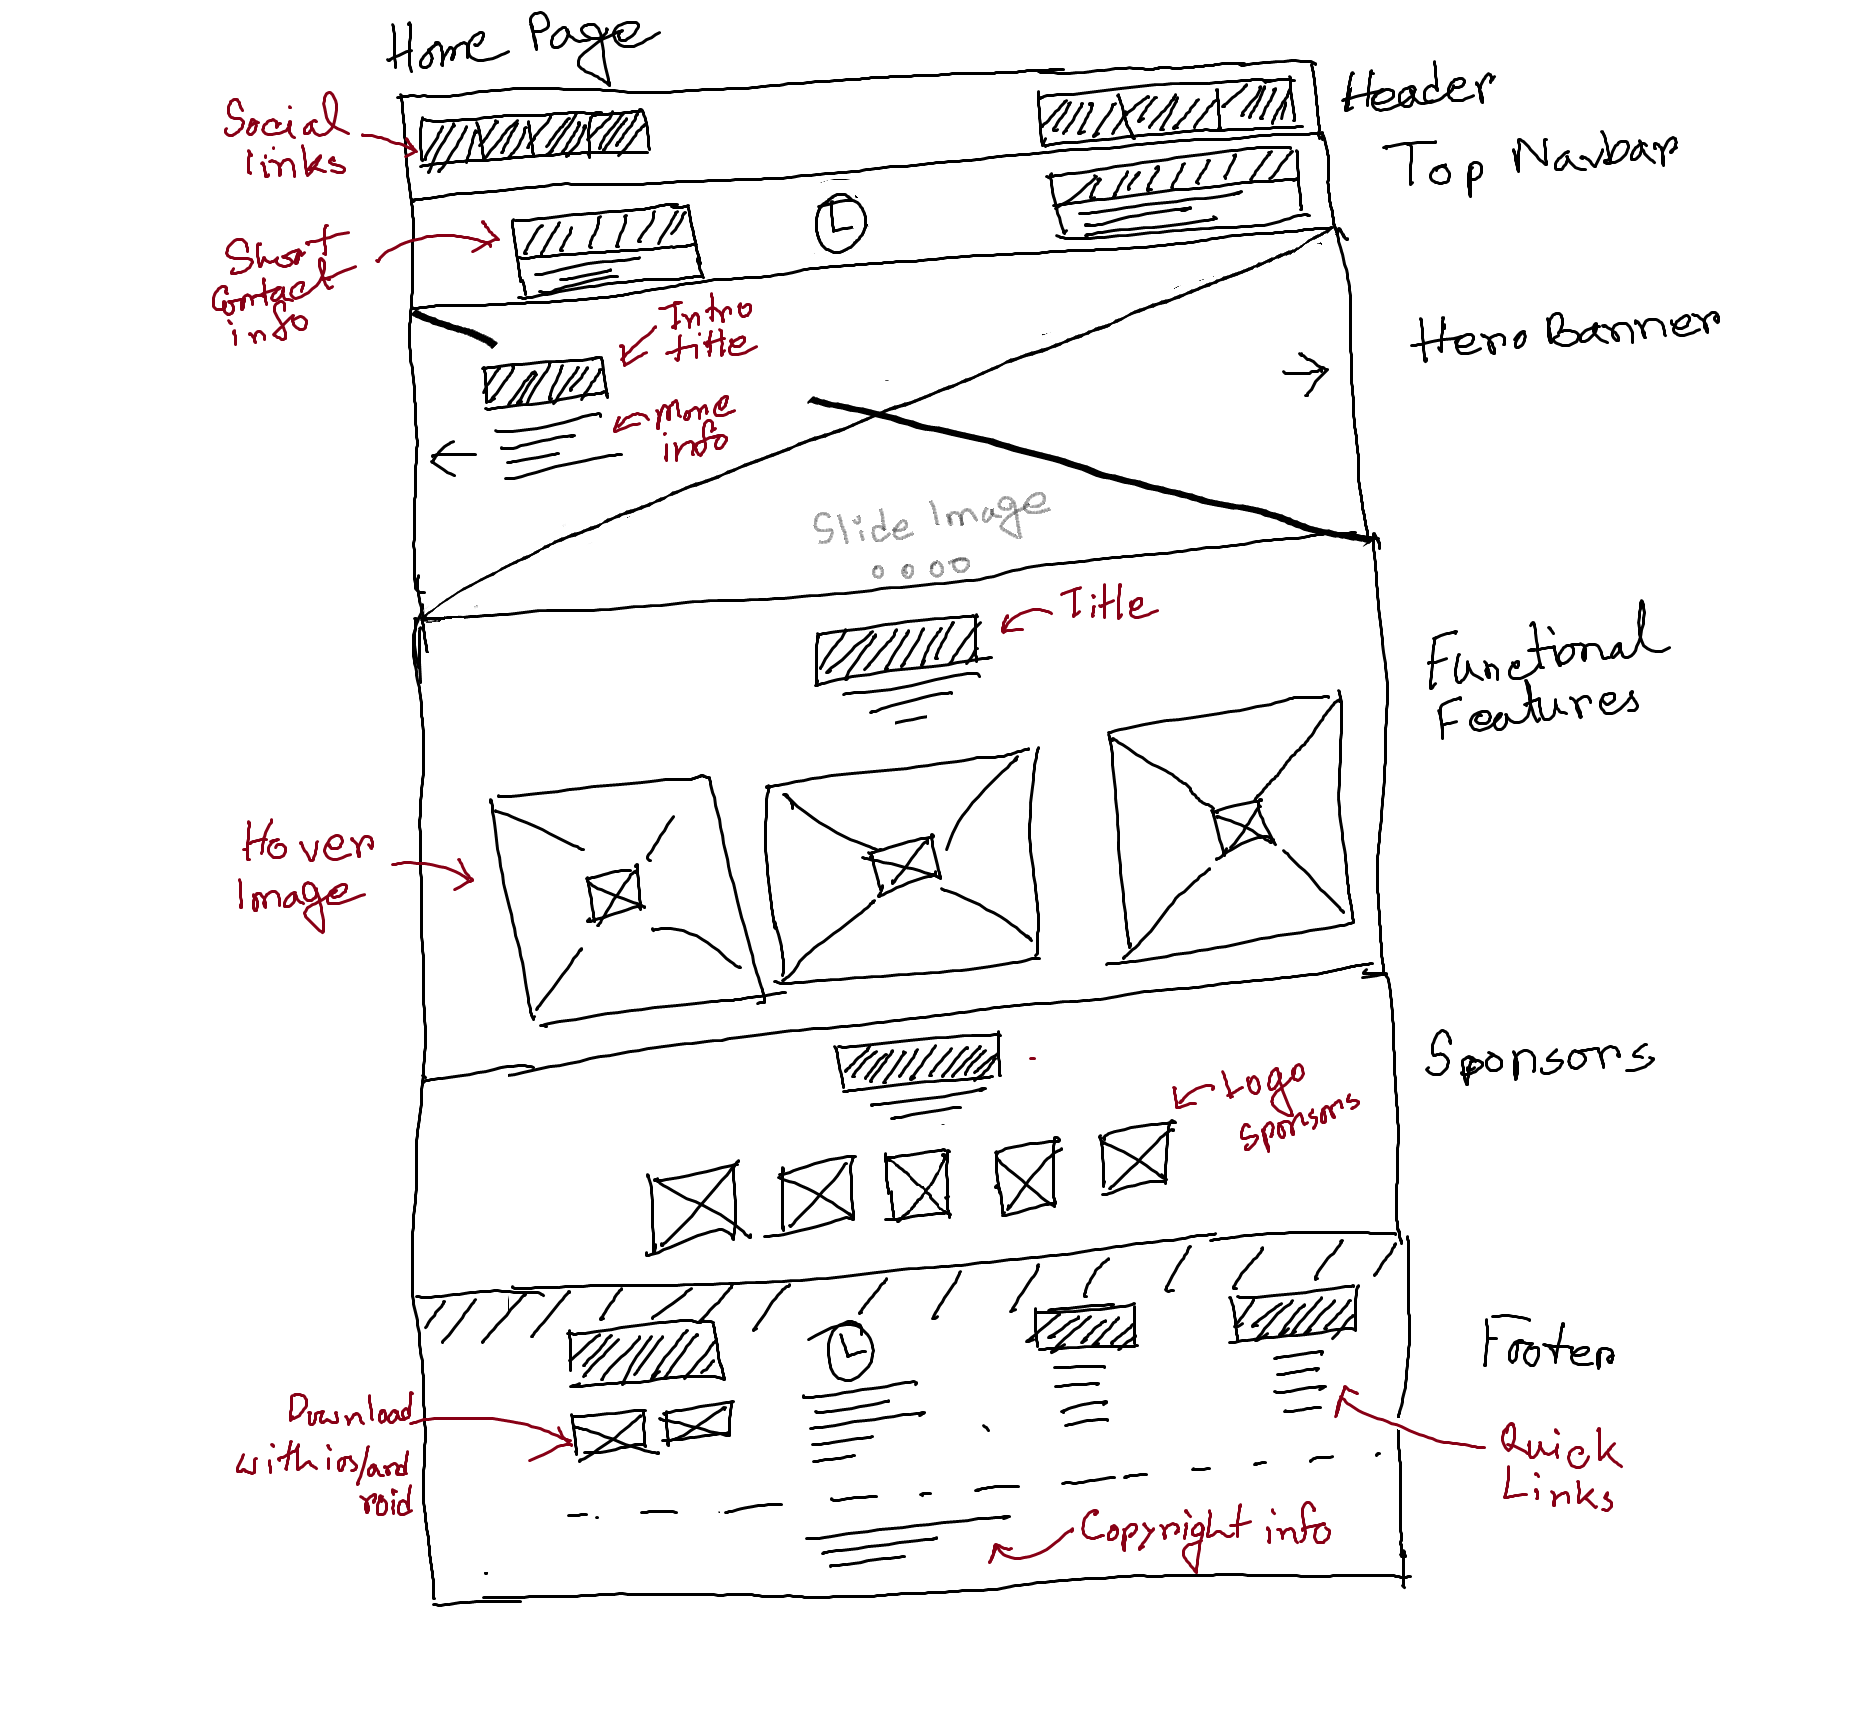 Home Page
Header
Social
links
Top Navbar
Short
Contact
info
Intro
title
Hero Banner
More
info
Slide Image
Title
Functional
Features
Hover
Image
Sponsors
Logo
Sponsors
Footer
Download
with ios/and
roid
Quick
Links
Copyright info